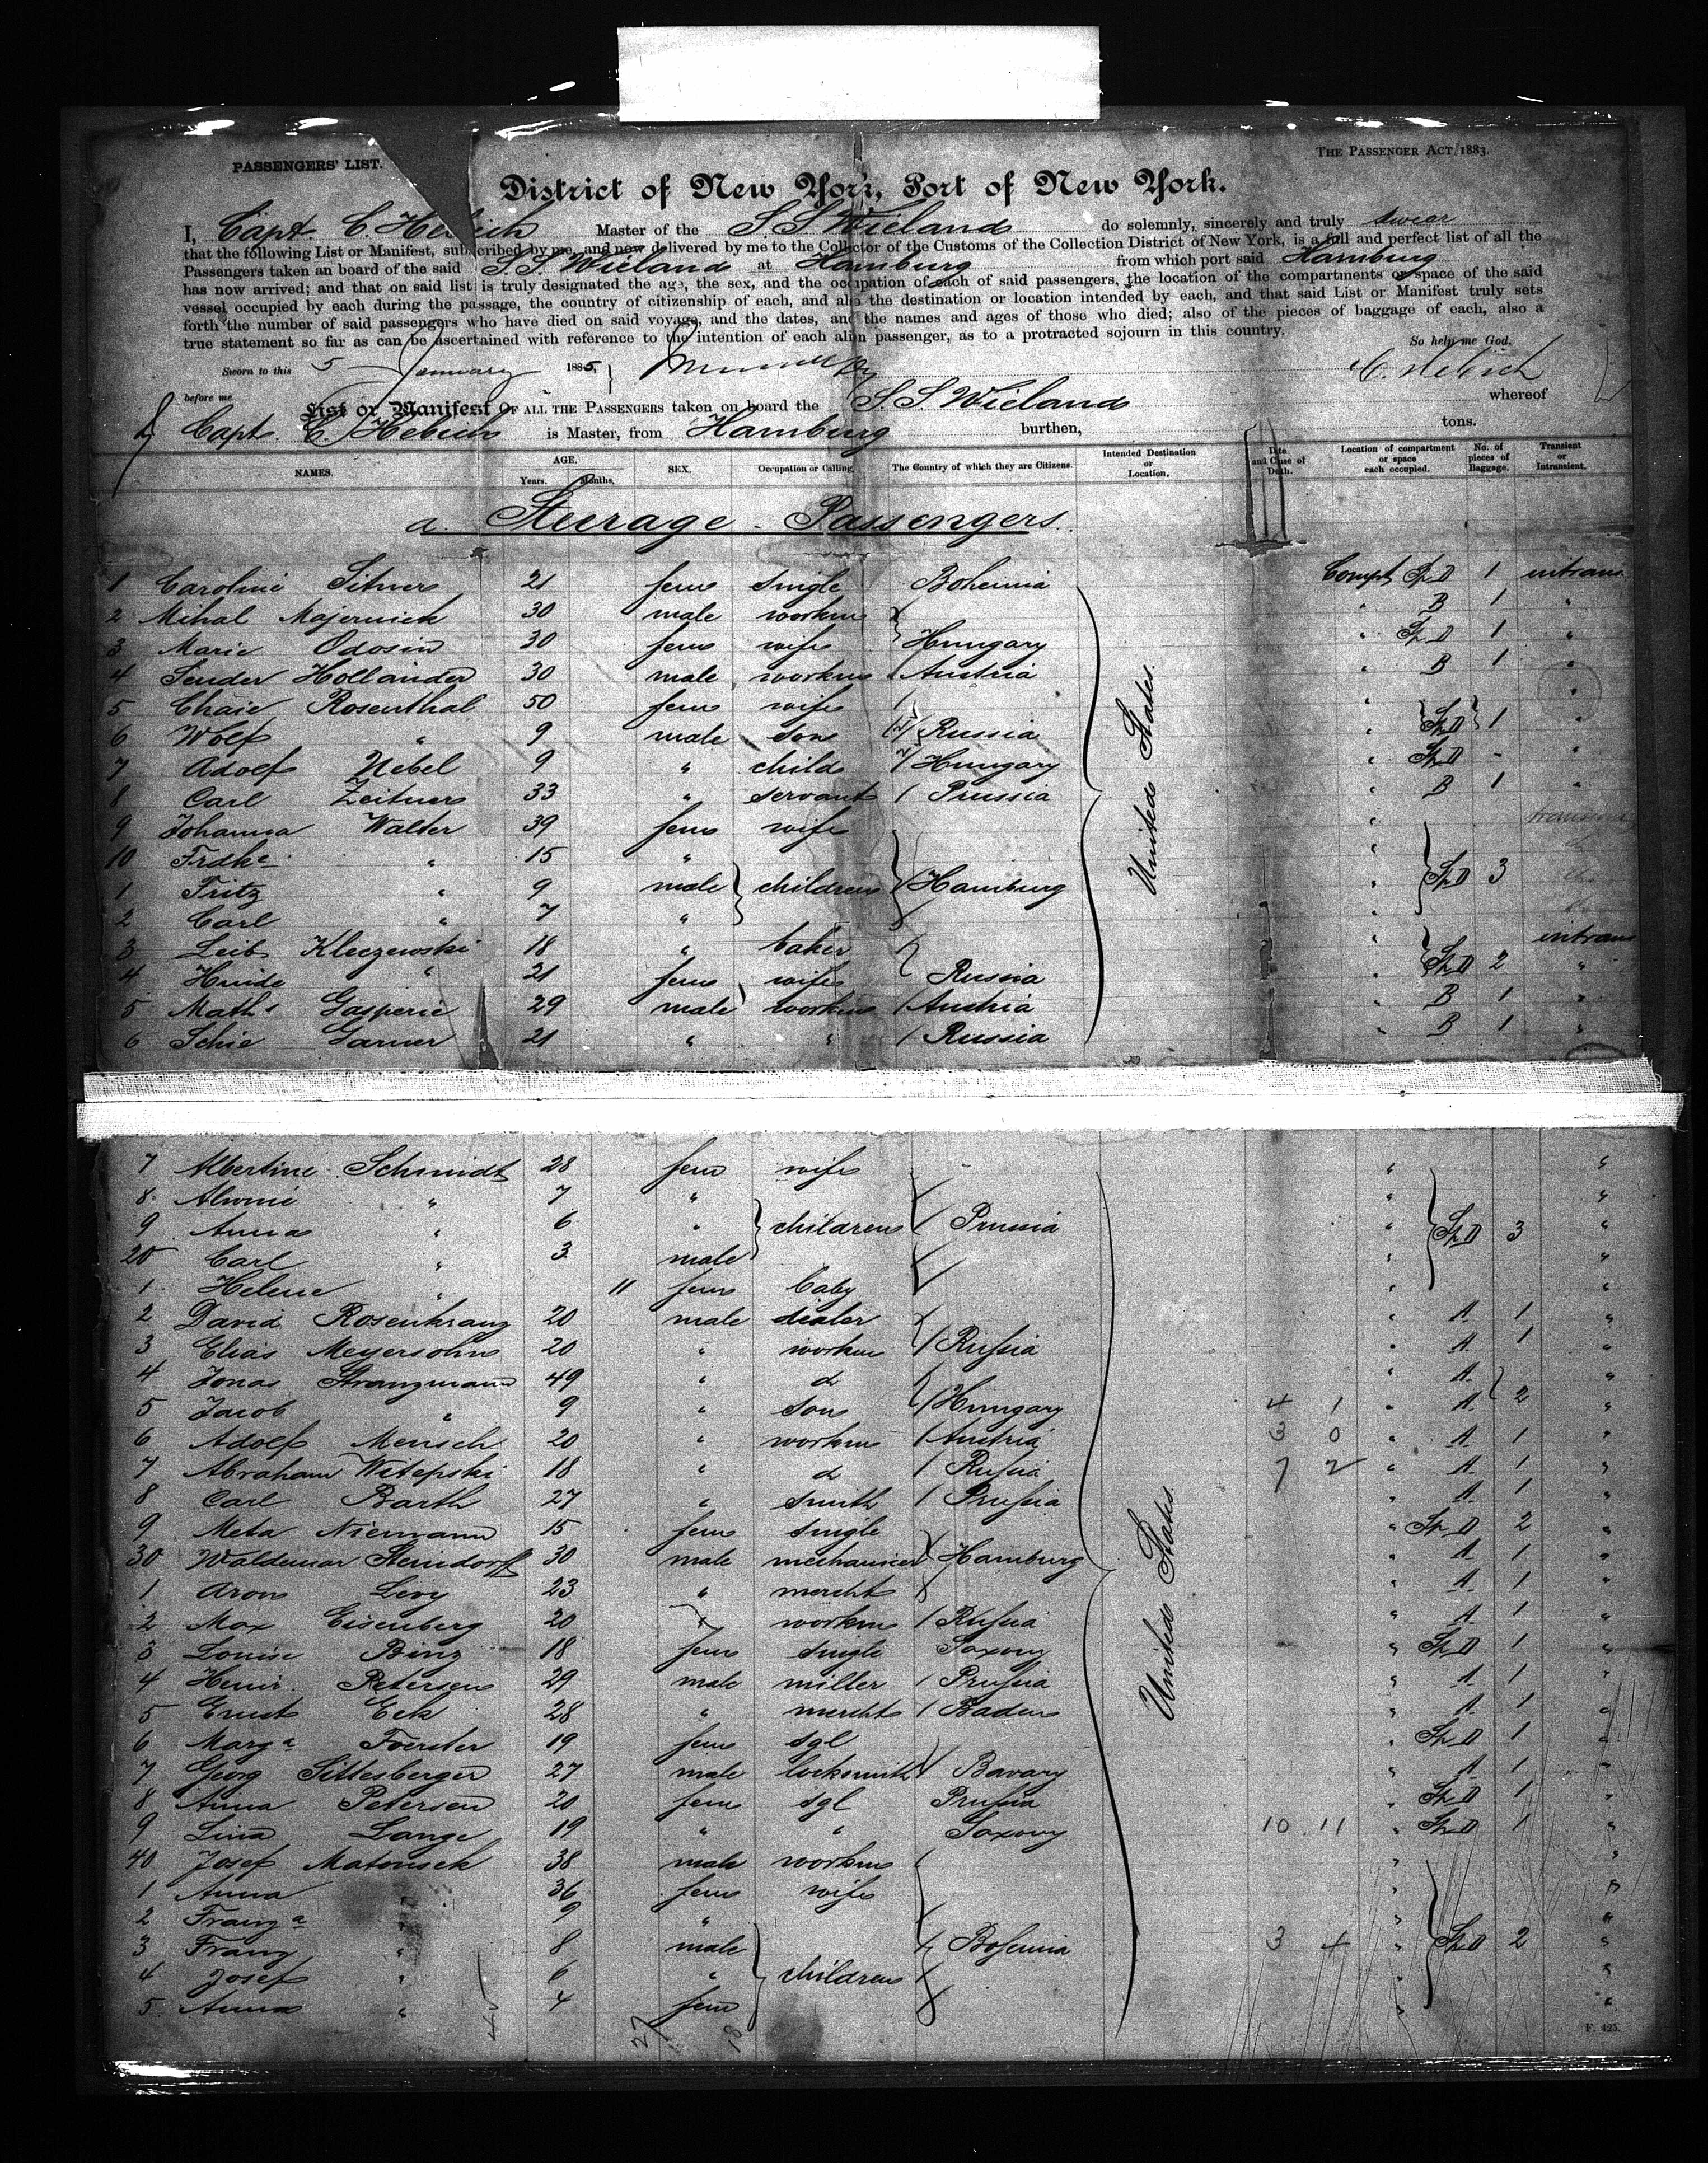 PASSENGERS' LIST.
THE PASSENGER ACT, 1883.
District of New York, Port of New York.
I, Capt. C. Hebich Master of the S.S. Wieland do solemnly, sincerely and truly swear
that the following List or Manifest, subscribed by me, and now delivered by me to the Collector of the Customs of the Collection District of New York, is a full and perfect list of all the
Passengers taken an board of the said S.S. Wieland at Hamburg from which port said Hamburg
has now arrived; and that on said list is truly designated the age, the sex, and the occupation of each of said passengers, the location of the compartments or space of the said
vessel occupied by each during the passage, the country of citizenship of each, and also the destination or location intended by each, and that said List or Manifest truly sets
forth the number of said passengers who have died on said voyage, and the dates, and the names and ages of those who died; also of the pieces of baggage of each, also a
true statement so far as can be ascertained with reference to the intention of each alien passenger, as to a protracted sojourn in this country.
So help me God.
Sworn to this 5 January 1885, C. Hebich
before me
List or Manifest OF ALL THE PASSENGERS taken on board the S.S. Wieland whereof
Capt. C. Hebich is Master, from Hamburg burthen, tons.
NAMES. AGE. Years. Months. SEX. Occupation or Calling. The Country of which they are Citizens. Intended Destination or Location. Date and Cause of Death. Location of compartment or space each occupied. No. of pieces of Baggage. Transient or Intransient.
a. Steerage - Passengers
1 Caroline 21 fem single Bohemia Compt Sp D 1 intrans
2 Mihal Majernick 30 male workm B 1 "
3 Marie Odosin 30 fem wife Hungary " Sp D 1 "
4 Sender Hollander 30 male workm Austria " B 1 "
5 Chaie Rosenthal 50 fem wife "
6 Wolf " 9 male son Russia " Sp D 1 "
7 Adolf Nebel 9 " child Hungary " Sp D - "
8 Carl Zeitner 33 " servant Prussia " B 1 "
9 Johanna Walter 39 fem wife "
10 Frdke " 15 " "
1 Fritz " 9 male children Hamburg " Sp D 3
2 Carl " 7 " "
3 Leib Kleczewski 18 " baker " intrans
4 Hinde " 21 fem wife Russia " Sp D 2 "
5 Maths Gasperic 29 male workm Austria " B 1 "
6 Schie Garner 21 " " Russia " B 1 "
United States.
7 Albertine Schmidt 28 fem wife " "
8 Alwine " 7 " " "
9 Anna " 6 " children Prussia " Sp D 3 "
20 Carl " 3 male " "
1 Helene " 11 fem baby " "
2 David Rosenkranz 20 male dealer " A. 1 "
3 Elias Meyersohn 20 " workm Russia " A. 1 "
4 Jonas Strangmann 49 " d " A. "
5 Jacob " 9 " son Hungary 4 1 " A. 2 "
6 Adolf Mensch 20 " workm Austria 3 0 " A. 1 "
7 Abraham Witepski 18 " d Russia 7 2 " A. 1 "
8 Carl Barth 27 " smith Prussia " A. 1 "
9 Meta Niemann 15 fem single " Sp D 2 "
30 Waldemar Steindorff 30 male mechanicer Hamburg " A. 1 "
1 Aron Levy 23 " mercht " A. 1 "
2 Max Eisenberg 20 workm Russia " A 1 "
3 Louise Binz 18 fem single Saxony " Sp D 1 "
4 Heinr. Petersen 29 male miller Prussia " A 1 "
5 Ernst Eck 28 " mercht Baden " A. 1 "
6 Marga Foerster 19 fem sgl " Sp D 1 "
7 Georg Sittesberger 27 male locksmith Bavary " A 1 "
8 Anna Petersen 20 fem sgl Prussia " Sp D 1 "
9 Lina Lange 19 " " Saxony 10 11 " Sp D 1 "
40 Josef Matousek 38 male workm " "
1 Anna 36 fem wife " "
2 Franza " 9 " " "
3 Franz " 8 male Bohemia 3 4 " Sp D 2 "
4 Josef " 6 " children " "
5 Anna " 4 fem " "
United States
45
27
18
F. 425.